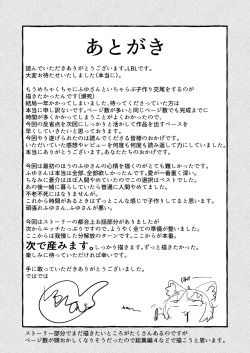 あとがき
読んでいただきありがとうございます。LBLです。
大変お待たせいたしました(本当に)。
もうめちゃくちゃにふゆさんといちゃらぶ子作り交尾をするのが
描きたかったんです(爆死)
結局一年かかってしまいました、待ってくださっていた方は
本当に申し訳ないです。ページ数が多いと同じページ数でも完成までに
時間が多くかかってしまうことがよくわかったので、
今回の反省点を次回にしっかりと活かして作品を出すペースを
早くしていきたいと思っております。
今回やり遂げられたのは読んでくださる皆様のおかげです。
いただいていた感想やレビューを何度も何度も読み返して力にしていました。
本当にありがとうございます。あなたたちのおかげです。
今回は最初のほうのふゆさんの心情を描くのがとても難しかったです。
ふゆさんは本当は全部、全部欲しかったんです。愛が一番重く深い。
ちなみに蒼介はほぼ人間やめていたのでこの選択はベストでした。
あの後一緒に暮らしていたら普通に人間やめてました。
不老不死にはなりませんが。
これから時間があるときはずっとこんな感じで子作りしてると思います。
頑張れふゆさん、ふゆさんが勇者。
今回はストーリーの都合上お預部分がありましたが
次からエッチたっぷりですので、ようやく全ての準備が整いました。
ここからは我慢した分解放のターンです。ここからが本番。
次で産みます。しっかり描きます。ずっと描きたかった。
楽しみに待っていただければ幸いです。
手に取っていただきありがとうございました。
ではでは
ストーリー部分でまだ描きたいところがたくさんあるのですが
ページ数が頭おかしくなりそうだったので総集編4などで描こうと思います。